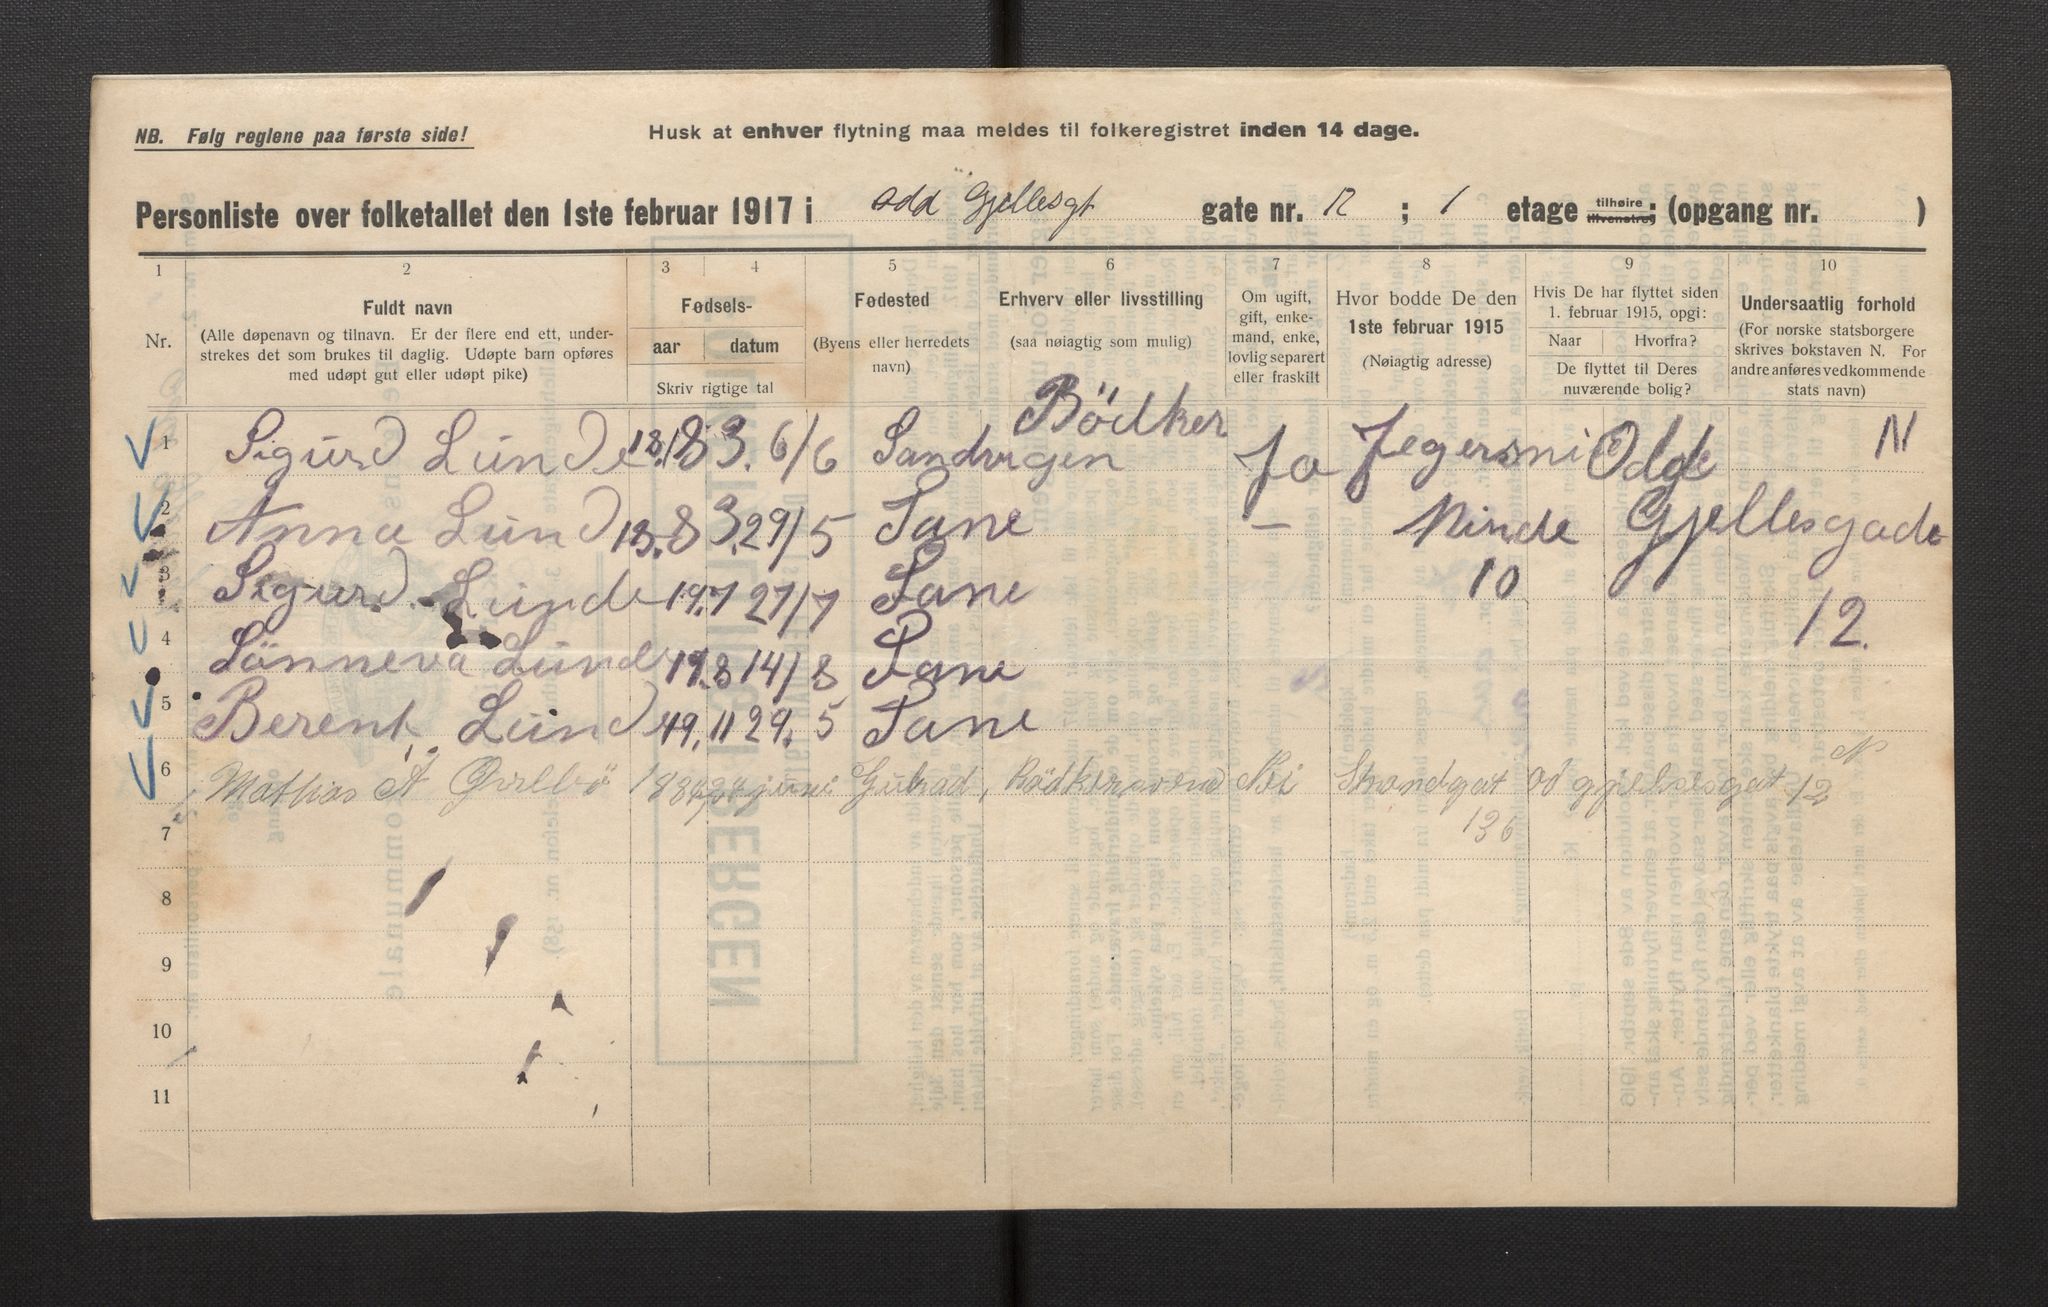 NB. Følg reglene paa første side!
Husk at enhver flytning maa meldes til folkeregistret inden 14 dage.
Personliste over folketallet den 1ste februar 1917 i Odd Gjellesgt gate nr. 12 ; 1 etage tilhøire tilvenstre; (opgang nr. )
1 2 3 4 5 6 7 8 9 10
Nr.
Fuldt navn
(Alle døpenavn og tilnavn. Er der flere end ett, under-
strekes det som brukes til daglig. Udøpte barn opføres
med udøpt gut eller udøpt pike)
Fødsels-
aar datum
Skriv rigtige tal
Fødested
(Byens eller herredets
navn)
Erhverv eller livsstilling
(saa nøiagtig som mulig)
Om ugift,
gift, enke-
mand, enke,
lovlig separert
eller fraskilt
Hvor bodde De den
1ste februar 1915
(Nøiagtig adresse)
Hvis De har flyttet siden
1. februar 1915, opgi:
Naar Hvorfra?
De flyttet til Deres
nuværende bolig?
Undersaatlig forhold
(For norske statsborgere
skrives bokstaven N. For
andre anføres vedkommende
stats navn)
1 Sigurd Lunde 18.83. 6/6 Sandvigen Bödker Ja Jegersmi Odde N
2 Anna Lund 18.83. 29/5 Sane — Minde Gjellesgade
3 Sigurd Lunde 19.7 27/7 Sane 10 12.
4 Sönneva Lund 19.8 14/8 Sane
5 Berent Lund 19.11 29.5 Sane
6 Mathias A 188 juni Bödkersvend Nei Strandgat od gjelsesgat 12 N
136
7
8
9
10
11